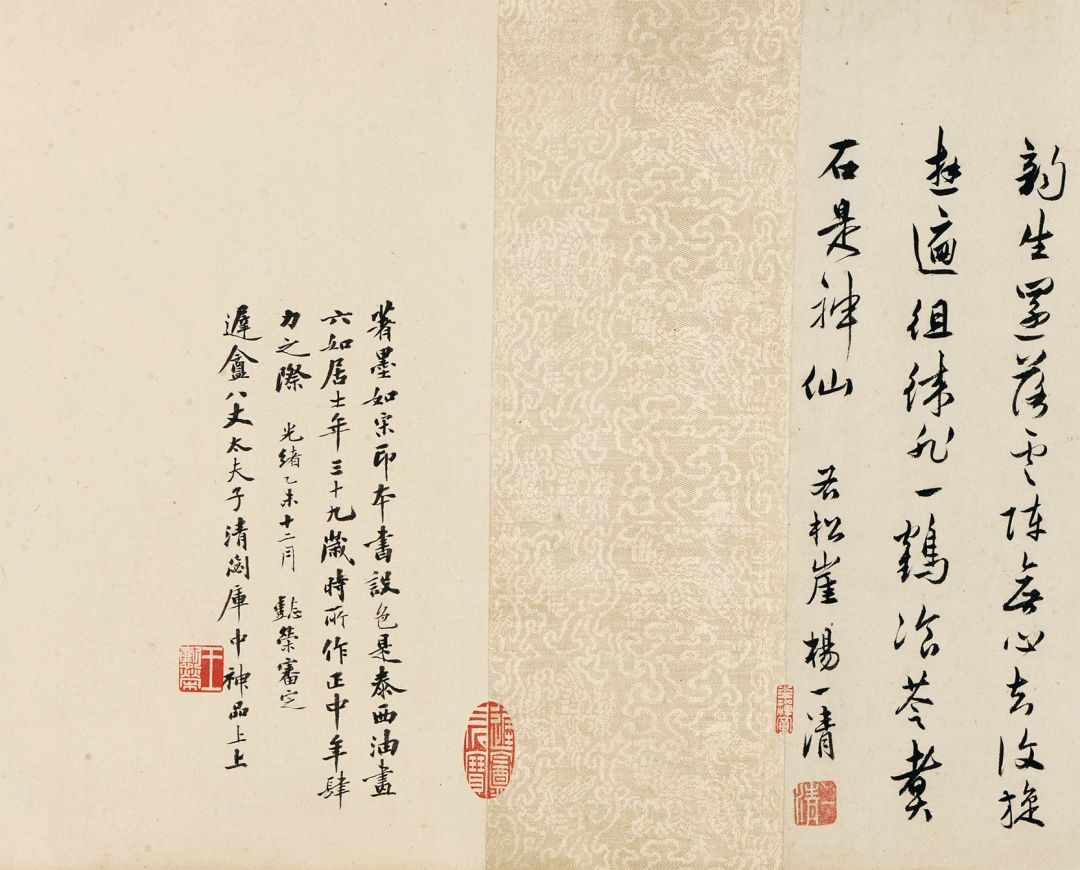 韵生還落雲陣無心去復旋
遊遍徂徠飛一鶴冷苓煑
石是神仙 若松崖 楊一清
著墨如宋印本書設色是泰西油畫
六如居士年三十九歲時所作正中年肆
力之際 光緒乙未十二月 懿榮審定
遲盦八丈太夫子清閟庫中神品上上
王懿榮